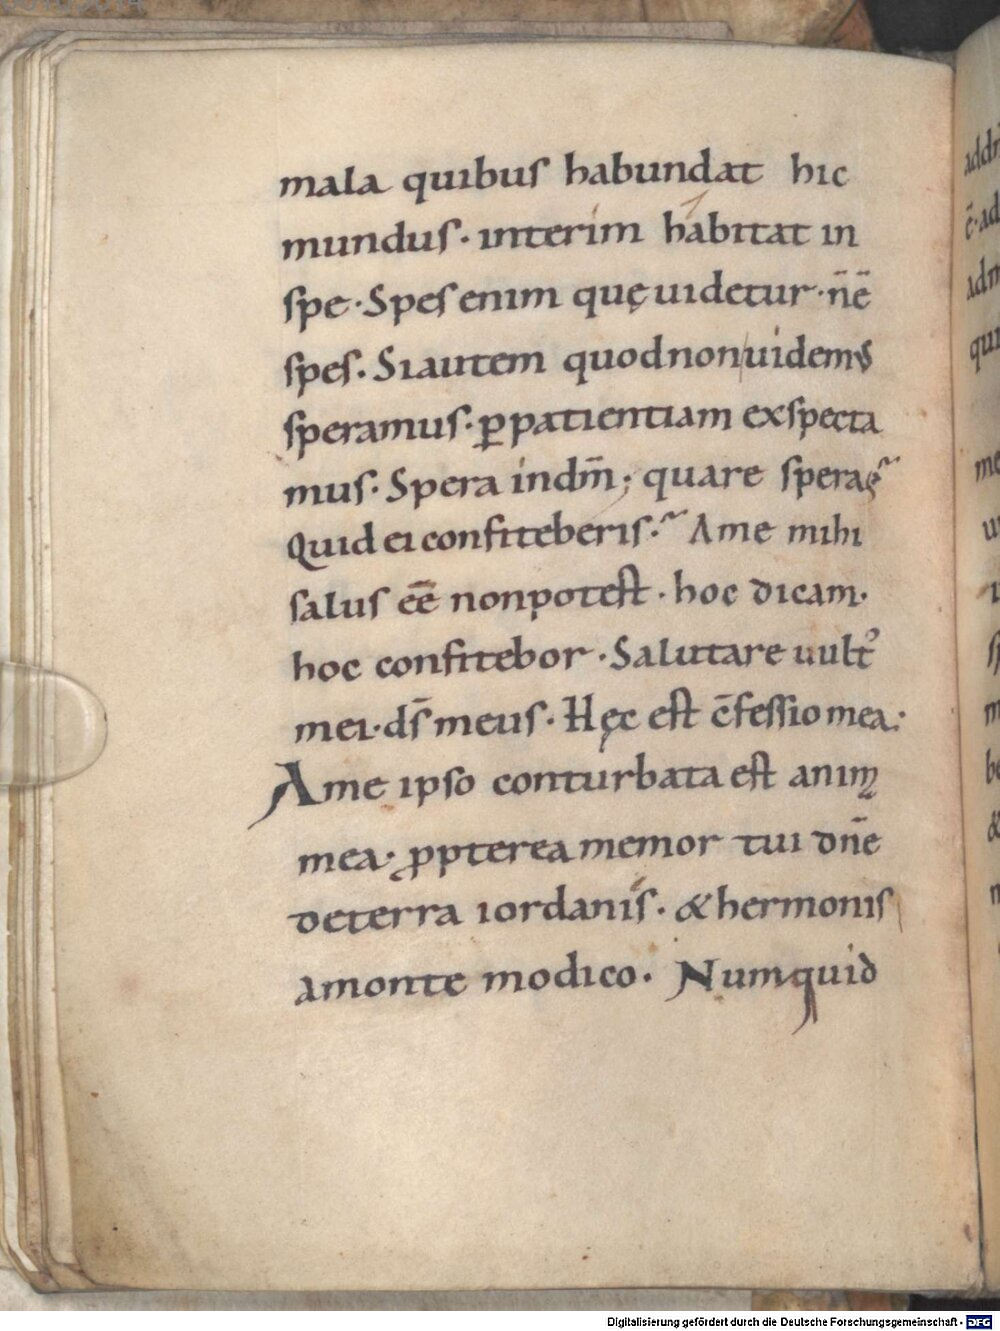 mala quibus habundat hic
mundus · interim habitat in
spe · Spes enim quę uidetur · n̄ ē
spes · Si autem quod non uidemus
speramus · ꝑ patientiam exspecta
mus · Spera in dm̄ ; quare speras
Quid ei confiteberis · A me mihi
salus eē non potest · hoc dicam ·
hoc confitebor · Salutare uult᾽
mei · ds̄ meus · Hęc est c̄fessio mea ·
A me ipso conturbata est anima
mea · ꝓpterea memor tui dn̄e
de terra iordanis · & hermonis
a monte modico · Numquid
Digitalisierung gefördert durch die Deutsche Forschungsgemeinschaft - DFG